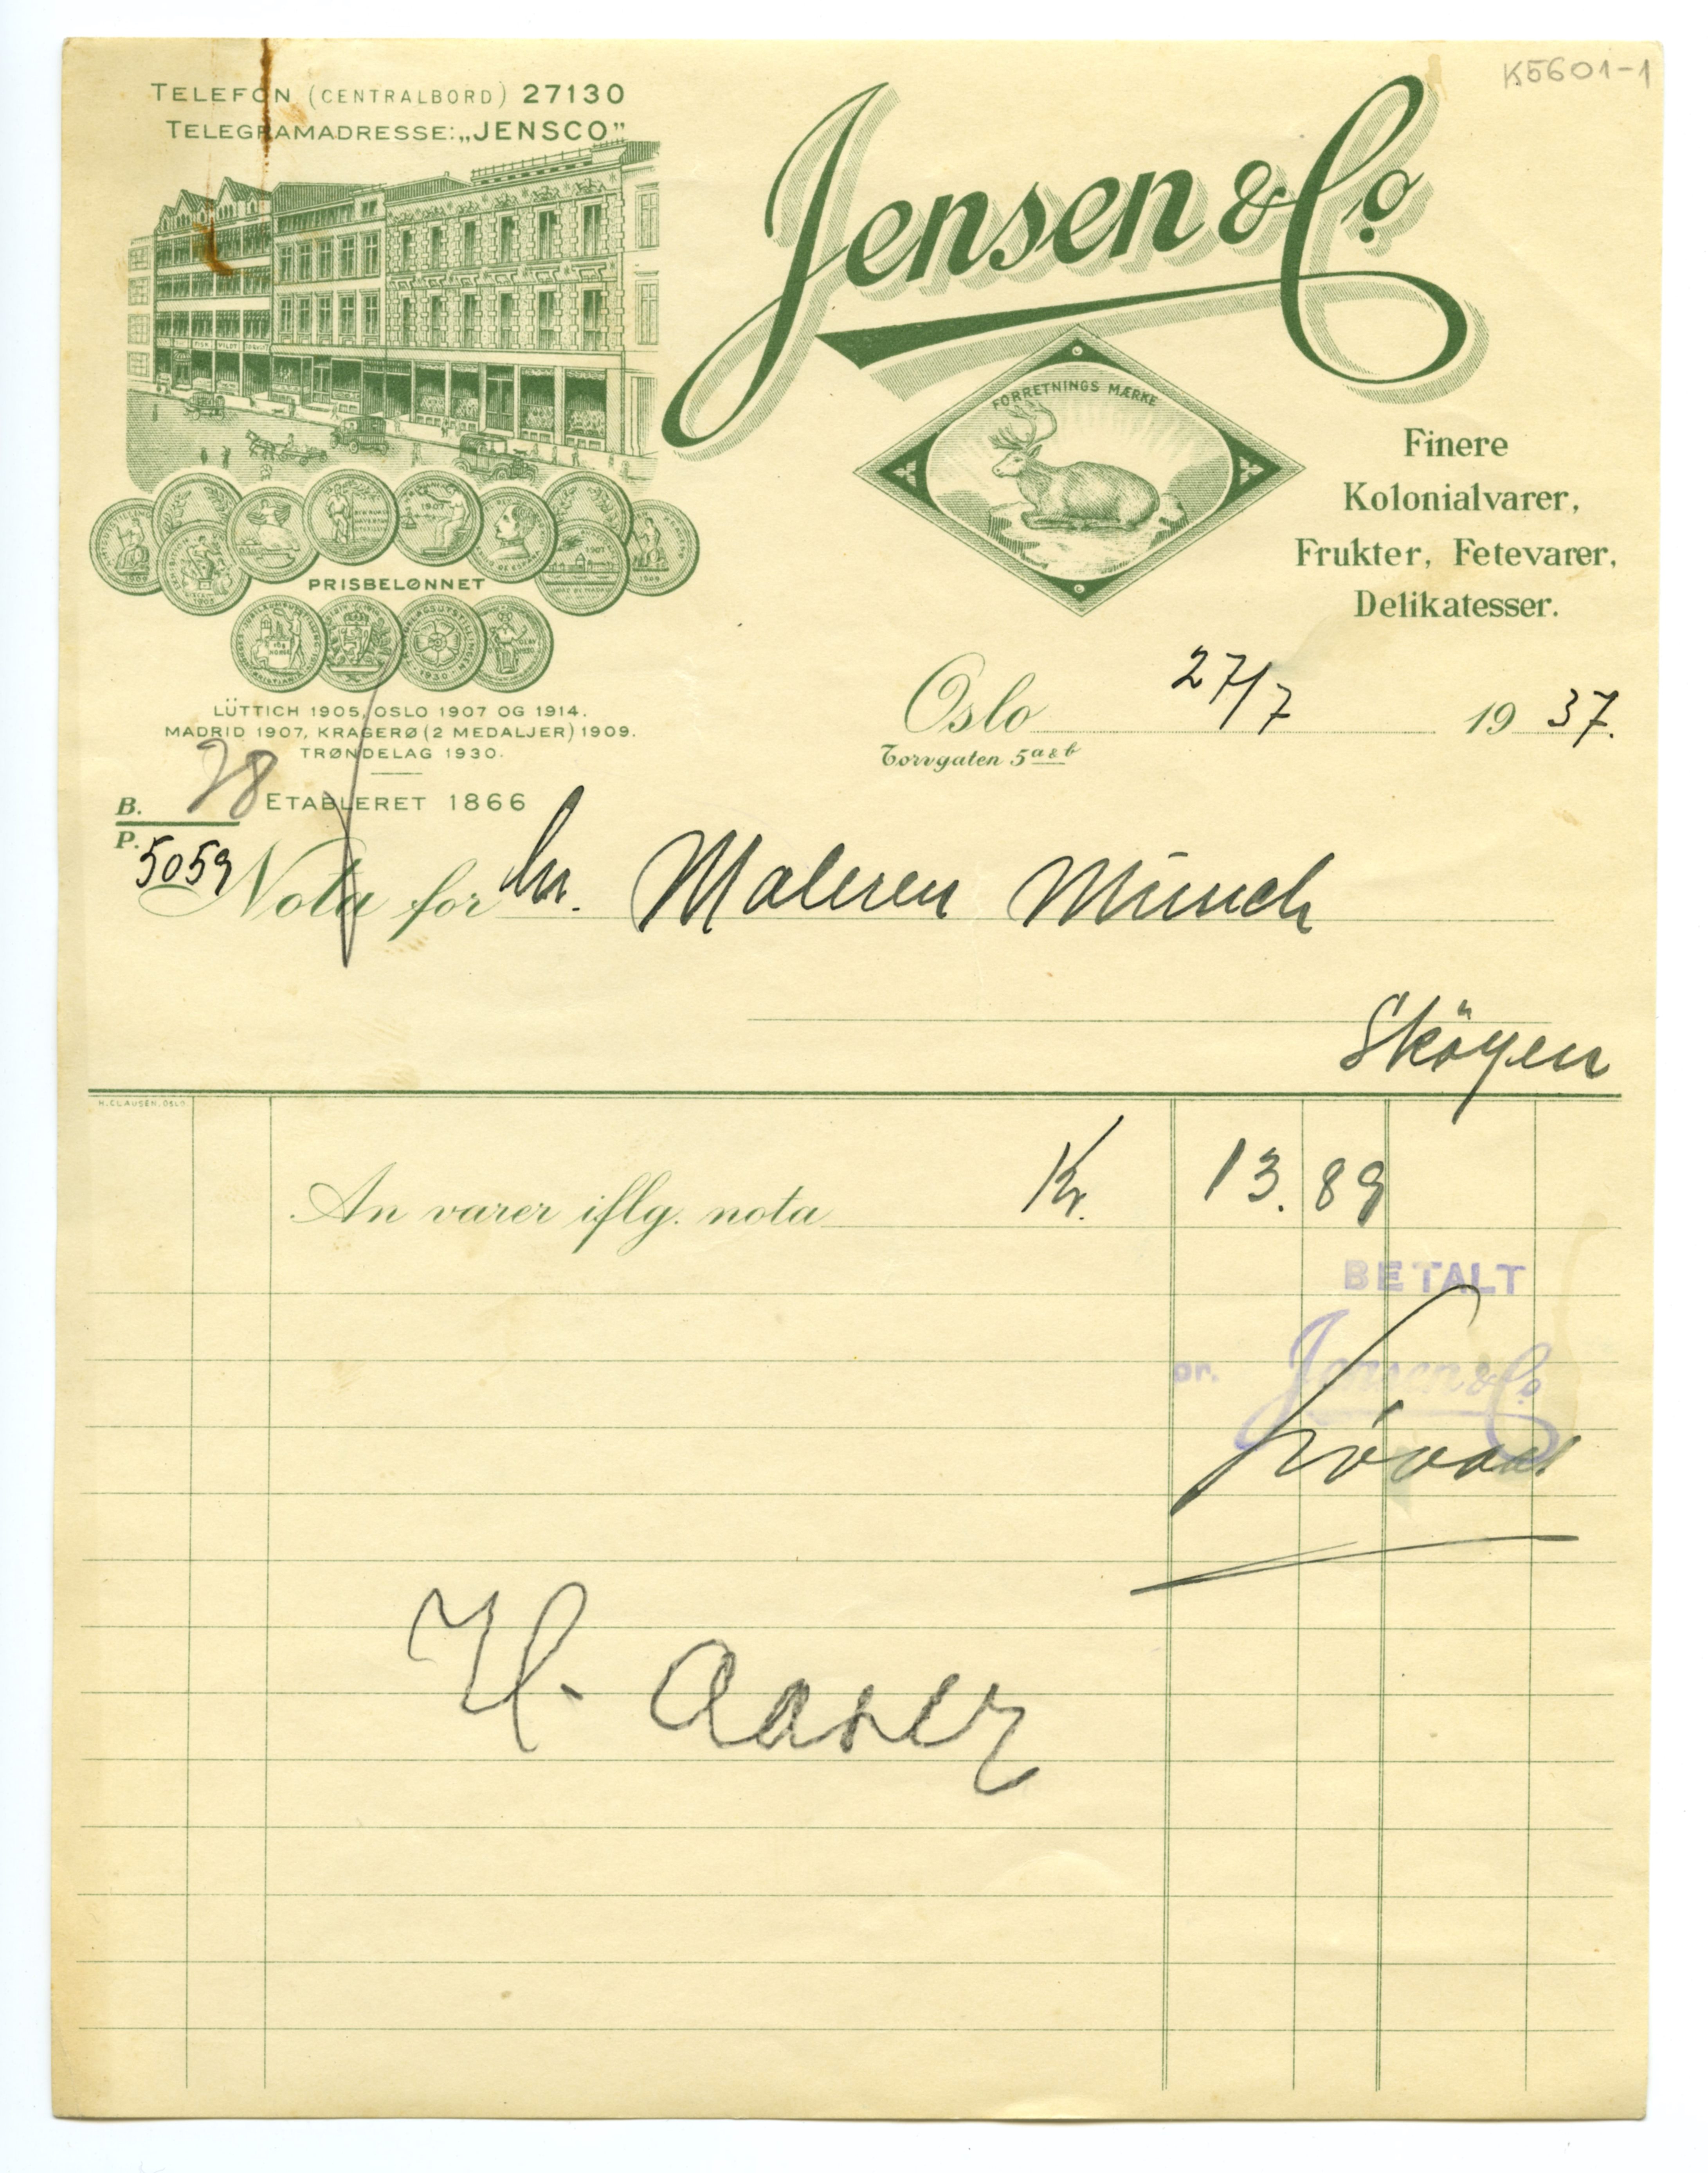 K5601-1
TELEFON (CENTRALBORD) 27130
TELEGRAMADRESSE: „JENSCO”
Jensen & Co.
FORRETNINGS MÆRKE
Finere
Kolonialvarer,
Frukter, Fetevarer,
Delikatesser.
PRISBELØNNET
LÜTTICH 1905, OSLO 1907 OG 1914.
MADRID 1907, KRAGERØ (2 MEDALJER) 1909.
TRØNDELAG 1930.
ETABLERET 1866
Oslo 27/7 1937.
Torvgaten 5 a & b
B. 28
P. 5059
Nota for hr. Maleren Münch
Sköyen
H. CLAUSEN. OSLO
An varer iflg. nota Kr. 13.89
BETALT
pr. Jensen & Co.
H.